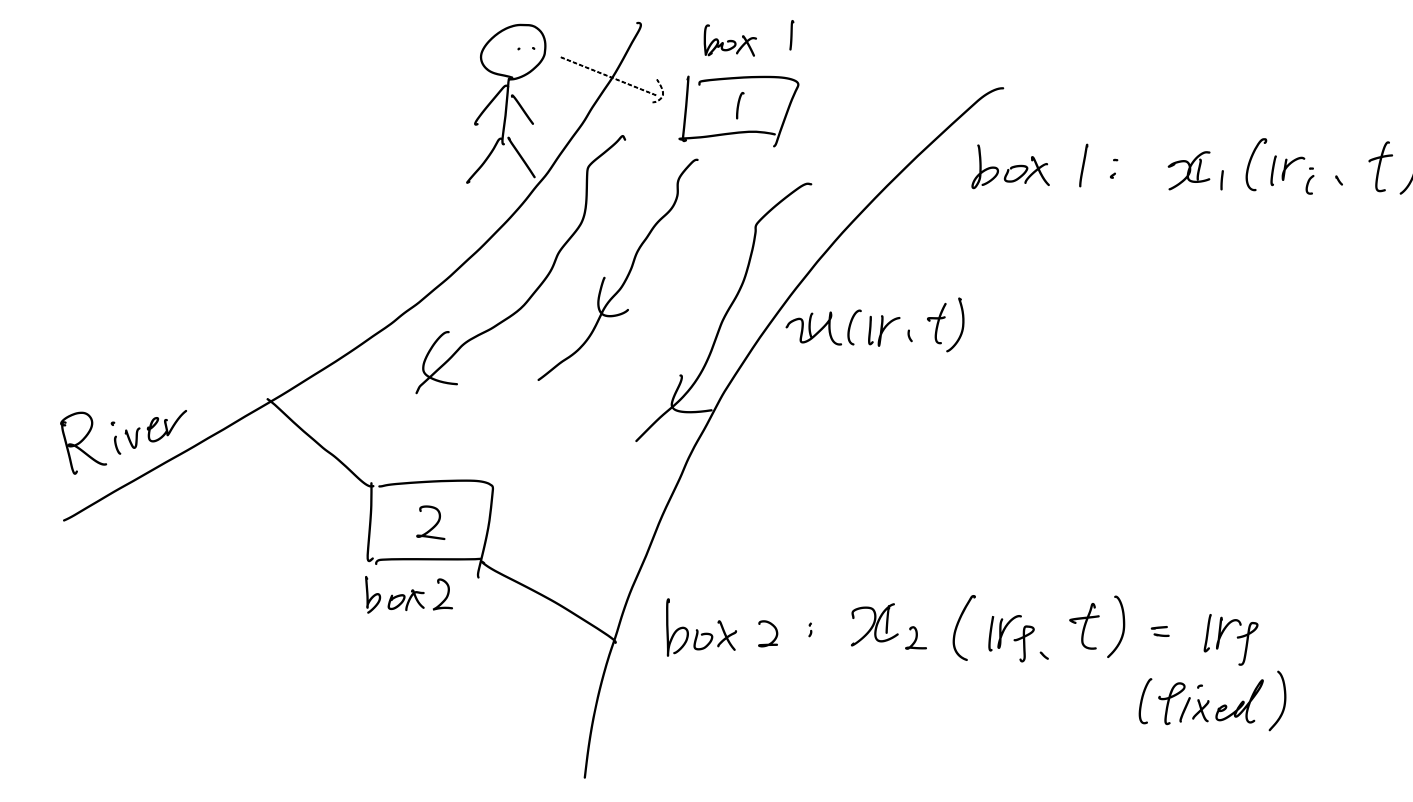 box 1
1
box 1 : x₁(𝕣ᵢ、t)
u(𝕣、t)
River
2
box 2
box 2 : x₂(𝕣f、t) = 𝕣f
(fixed)